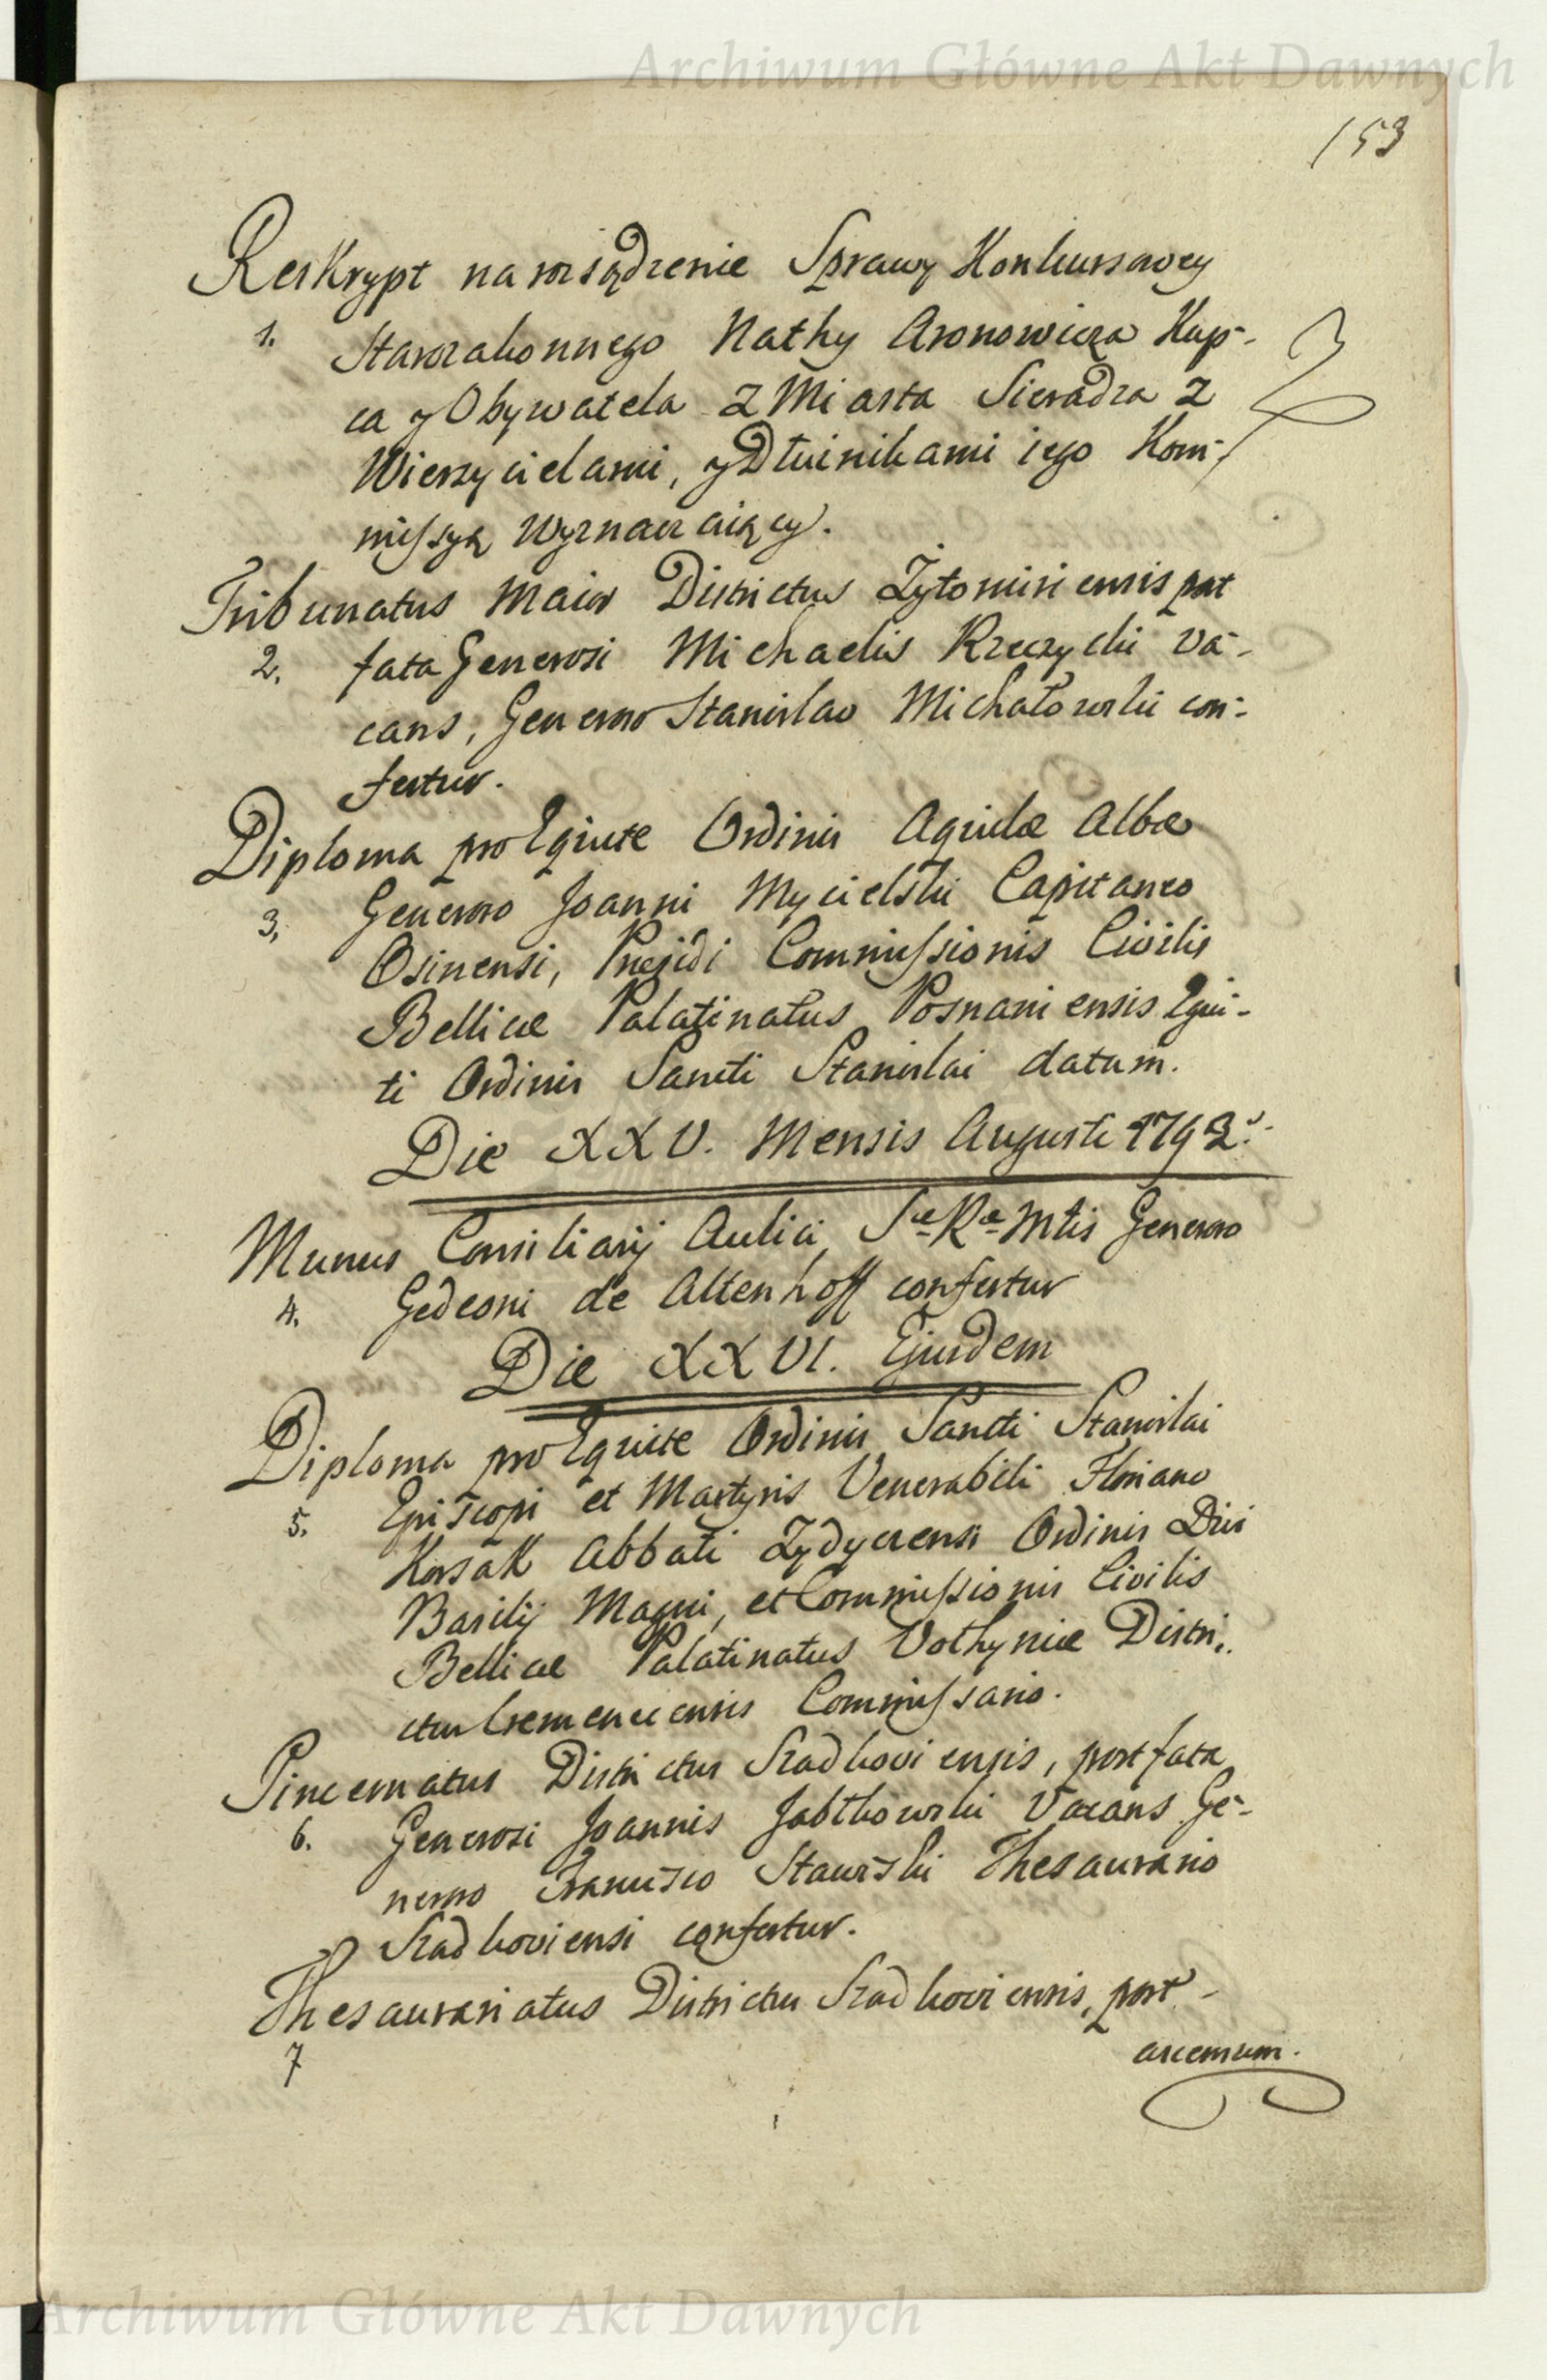 Archiwum Główne Akt Dawnych
153
Reskrypt na rozsądzenie Sprawy Konkursowey
1. Starozakonnego Nathy Aronowicza Kup-
ca y Obywatela z Miasta Sieradza z
Wierzycielami, y Dłużnikami iego Kom-
missyą Wyznaczaiący.
Tribunatus Maior Districtus Żytomiriensis post
2. fata Generosi Michaelis Rzeczycki va-
cans, Generoso Stanislao Michałowski con-
fertur.
Diploma pro Equite Ordinis Aquilæ Albæ
3. Generoso Joanni Mycielski Capitaneo
Osinensi, Præsidi Commissionis Civilis
Bellicæ Palatinatus Posnaniensis Equi-
ti Ordinis Sancti Stanislai datum.
Die XXV. Mensis Augusti 1792.
Munus Consiliarij Aulici Sæ Ræ Mtis Generoso
4. Gedeoni de Altenhoff confertur
Die XXVI. Ejusdem
Diploma pro Equite Ordinis Sancti Stanislai
5. Episcopi et Martyris Venerabili Floriano
Korsak Abbati Zydyczensi Ordinis Divi
Basilij Magni, et Commissionis Civilis
Bellicæ Palatinatus Volhyniæ Distri-
ctus Cremenecensis Commissario.
Pincernatus Districtus Szadkoviensis, post fata
6. Generosi Joannis Jabłkowski Vacans Ge-
neroso Francisco Stawiski Thesaurario
Szadkoviensi confertur.
Thesaurariatus Districtus Szadkoviensis, post
7 ascensum.
Archiwum Główne Akt Dawnych